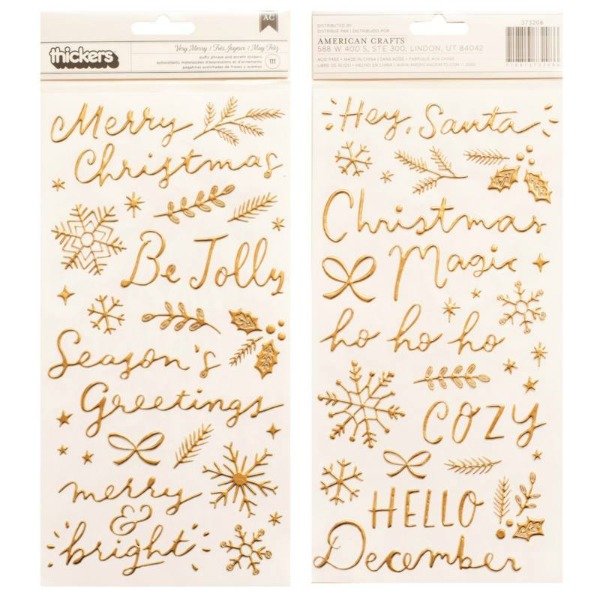 AC
thickers
Very Merry / Très Joyeux / Muy Feliz
111
Merry
Christmas
Be Jolly
Season's
Greetings
merry
&
bright
DISTRIBUTED BY
AMERICAN CRAFTS
588 W 400 S, STE 300, LINDON, UT 84042
373206
Hey, Santa
Christmas
Magic
ho ho ho
COZY
HELLO
December